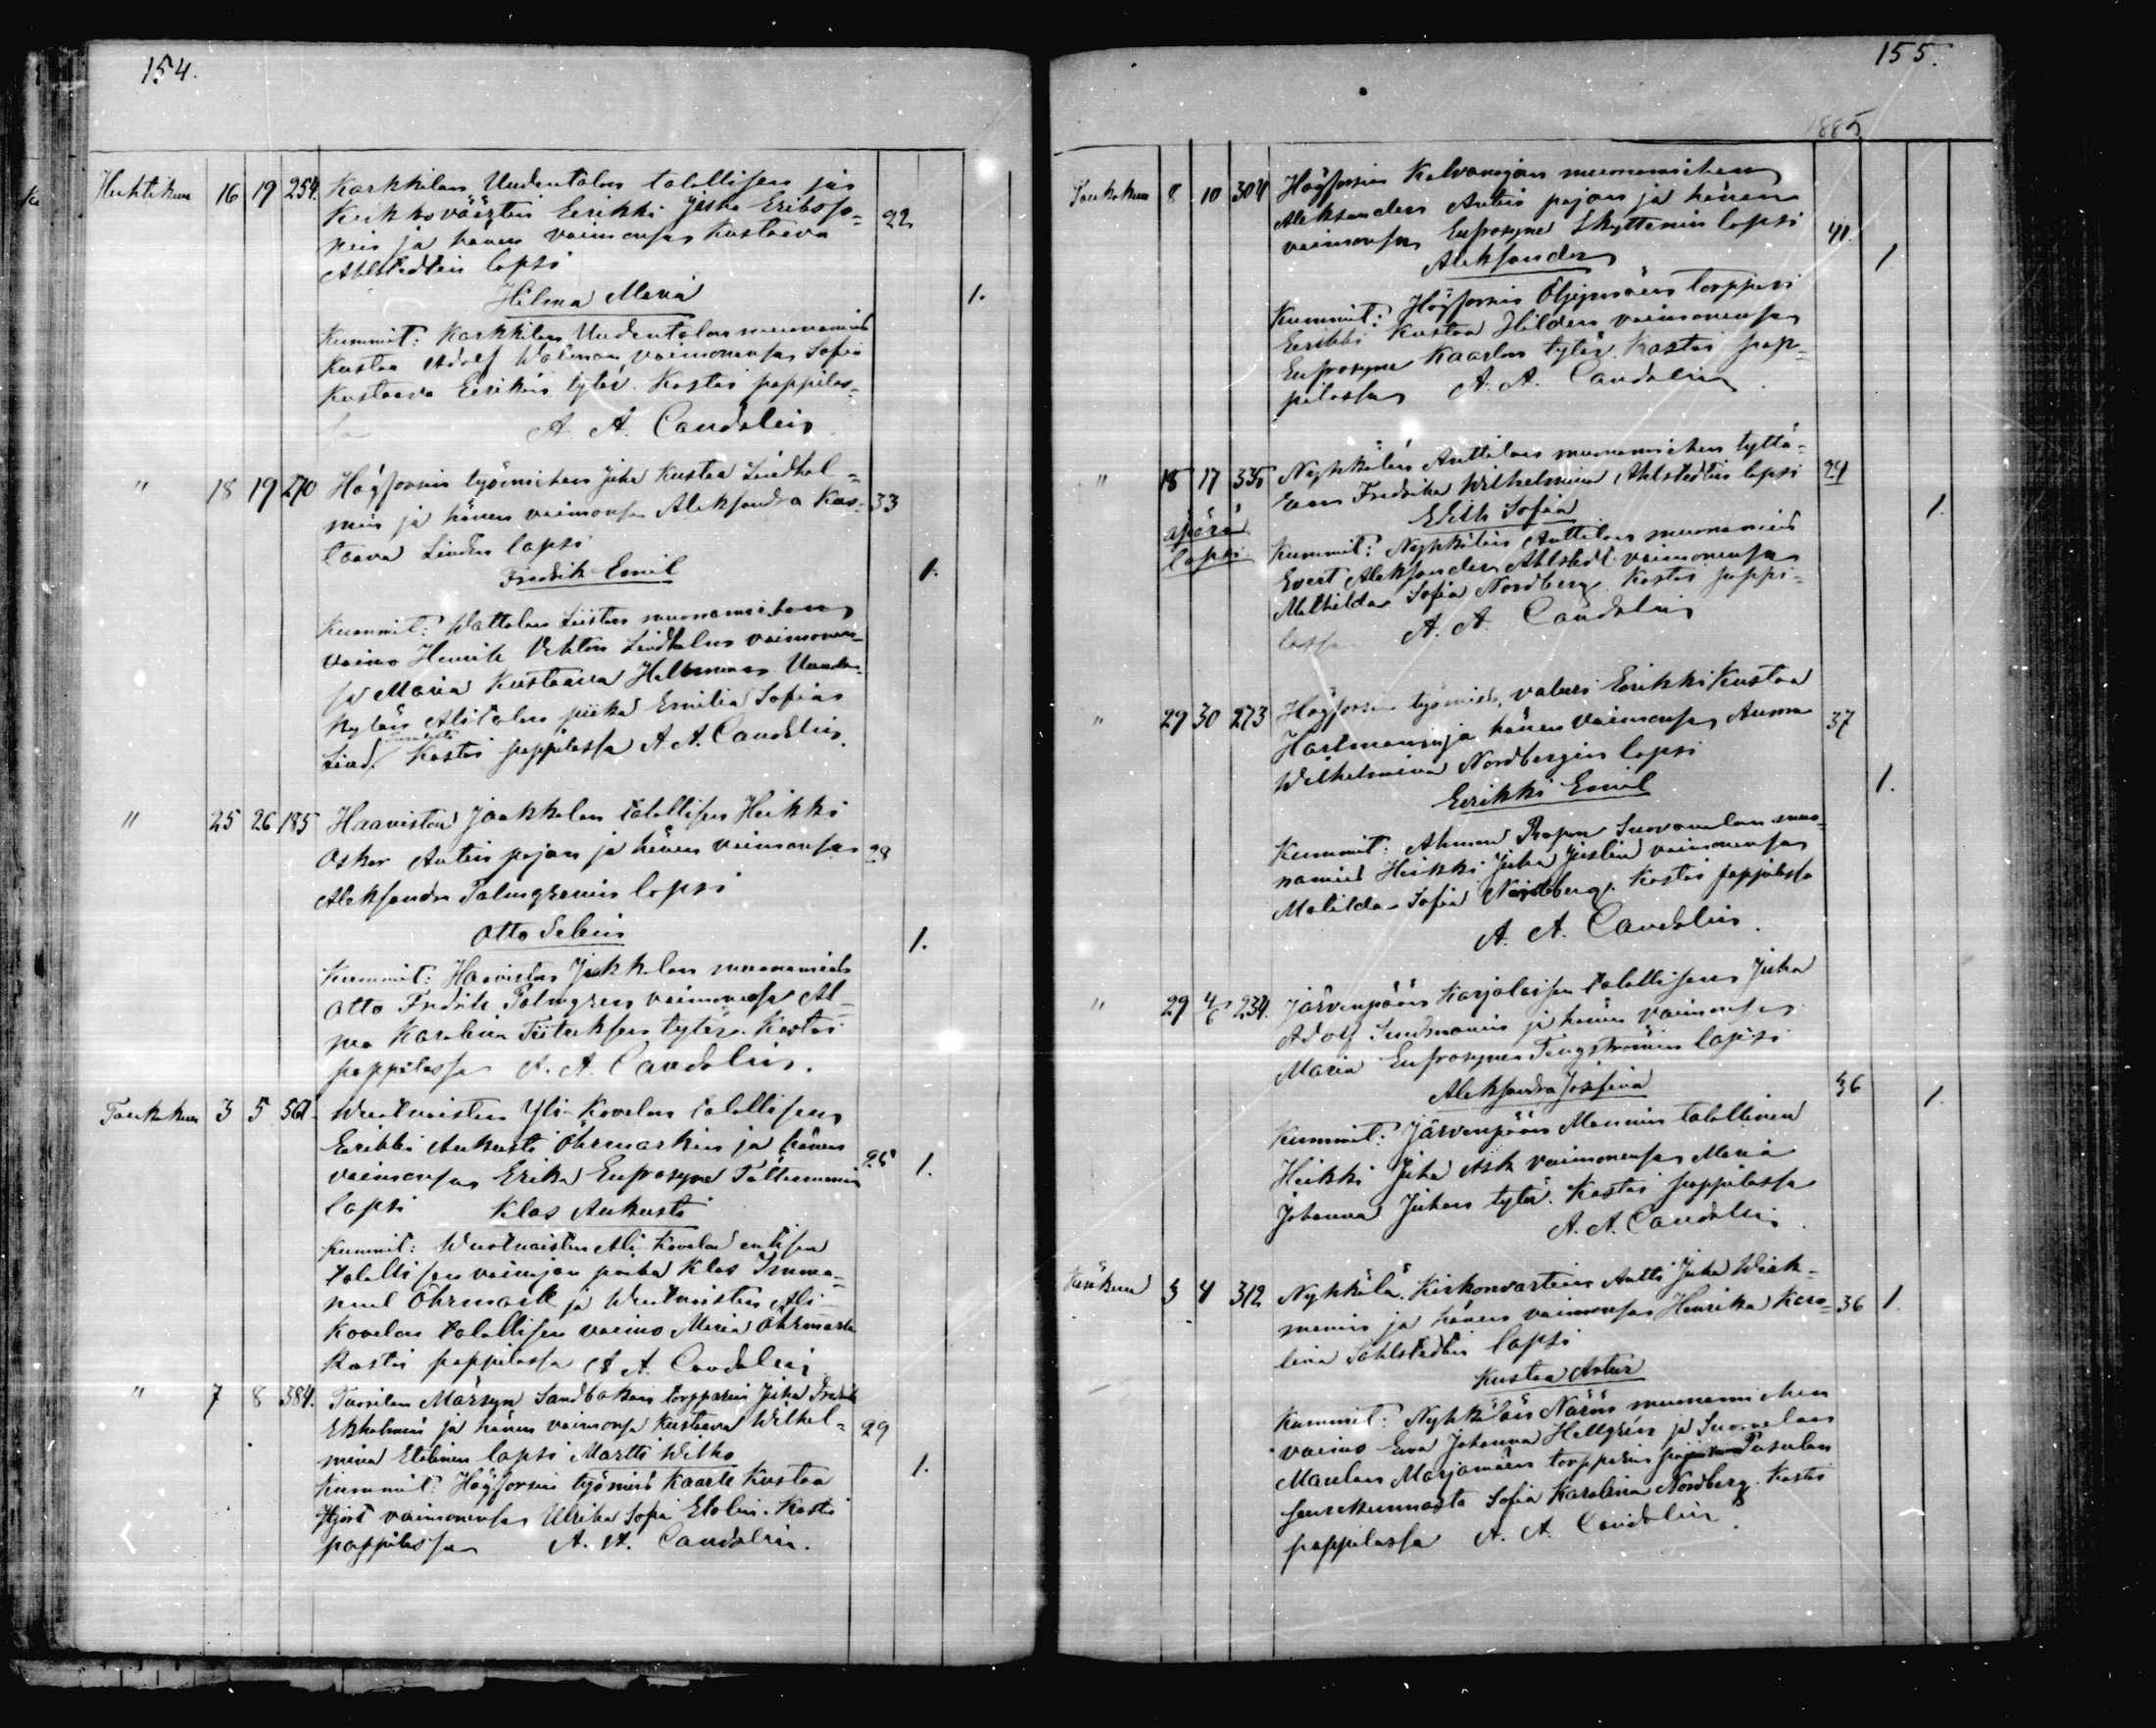 154.
Huhtikuu 16 19 254. Karkkilan Uudentalon talollisen ja
Kirkkoväärtin Eerikki Juha Eriksso-
nin ja hänen vaimonsa Kustaava 22
Ahlstedtin lapsi
Hilma Maria 1.
Kummit: Karkkilan Uudentalon muonamies
Kustaa Adolf Walman vaimonensa Sofia
Kustaava Eerikin tytär. Kastoi pappilas-
sa A. A. Candolin
" 18 19 270 Högforsin työmiehen Juha Kustaa Lindhol-
min ja hänen vaimonsa Aleksandra Kus- 33
taava Lindin lapsi
Fredrik Emil 1.
Kummit: Wattolan muonamiehen
vaimo Henrik Viktor Lindholm vaimonen-
sa Maria Kustaava Hellman
kylän Alitalon piika Emilia Sofia
Lind. Kastoi pappilassa A. A. Candolin.
" 25 26 185 Haaviston Jaakkolan talollisen Heikki
Oskar Antin pojan ja hänen vaimonsa 28
Aleksandra Palmgrenin lapsi
Otto Selim 1.
Kummit: Haaviston Jaakkolan muonamies
Otto Fredrik Palmgren vaimonensa Al-
ma Karolina Tiituksen tytär. Kastoi
pappilassa A. A. Candolin.
Toukokuu 3 5 561. Wuotnaisten Yli-Kovelan talollisen
Eerikki Aukusti Öhrmarkin ja hänen
vaimonsa Erika Eufrosyne Fältermanin 25 1.
lapsi Klas Aukusti
Kummit: Wuotnaisten Ali-Kovelan entisen
talollisen vainajan poika Klas Imma-
nuel Öhrmark ja Wuotnaisten Ali-
Kovelan talollisen vaimo Maria Öhrmark
Kastoi pappilassa A. A. Candolin
" 7 8 384. Tuorilan Märsyn Sandbakan torpparin Juha Fredrik
Ekholmin ja hänen vaimonsa Kustaava Wilhel- 29
mina Etolinin lapsi Martti Wilho 1.
Kummit: Högforsin työmies Kaarle Kustaa
Hjort vaimonensa Ulrika Sofia Etolin. Kastoi
pappilassa A. A. Candolin.
155.
1885
Toukokuu 8 10 304 Högforsin Kalvanojan muonamiehen
Aleksanderi Antin pojan ja hänen
vaimonsa Eufrosyne Skyttenin lapsi 41.
Aleksander 1
Kummit: Högforsin Öljymäen torppari
Eerikki Kustaa Hilden vaimonensa
Eufrosyne Kaarlon tytär. Kastoi pap-
pilassa A. A. Candolin.
" 15 17 335 Nyhkälän Anttilan muonamiehen tyttä-
ren Fredrika Wilhelmina Ahlstedtin lapsi 24
äpärä lapsi Edith Sofia 1.
Kummit: Nyhkälän Anttilan muonamies
Evert Aleksander Ahlstedt vaimonensa
Mathilda Sofia Nordberg. Kastoi pappi-
lassa A. A. Candolin
" 29 30 273 Högforsin työmies, valuri Eerikki Kustaa
Hartmanin ja hänen vaimonsa Anna 37
Wilhelmina Nordbergin lapsi
Eerikki Emil 1.
Kummit: Ahmoo Suovanalan muo-
namies Heikki Juha Juslin vaimonensa
Matilda Sofia Nordberg. Kastoi pappilassa
A. A. Candolin.
" 29 4/6 234. Järvenpään Karjalaisen talollisen Juha
Adolf Sundmanin ja hänen vaimonsa
Maria Eufrosyne Tengströmin lapsi
Aleksandra Josefina 36 1
Kummit: Järvenpään Mannin talollinen
Heikki Juha Ask vaimonensa Maria
Johanna Juhan tytär. Kastoi pappilassa
A. A. Candolin.
Kesäkuu 3 4 312 Nyhkälä. Kirkonvartian Antti Juha Wick-
manin ja hänen vaimonsa Henrika Karo- 36 1
lina Sahlstedtin lapsi
Kustaa Artur
Kummit: Nyhkälän Närön muonamiehen
vaimo Eva Johanna Hellgrén ja Suovelan
Maulan Marjamäen torpparin Pusulan
seurakunnasta Sofia Karolina Nordberg. Kastoi
pappilassa A. A. Candolin.